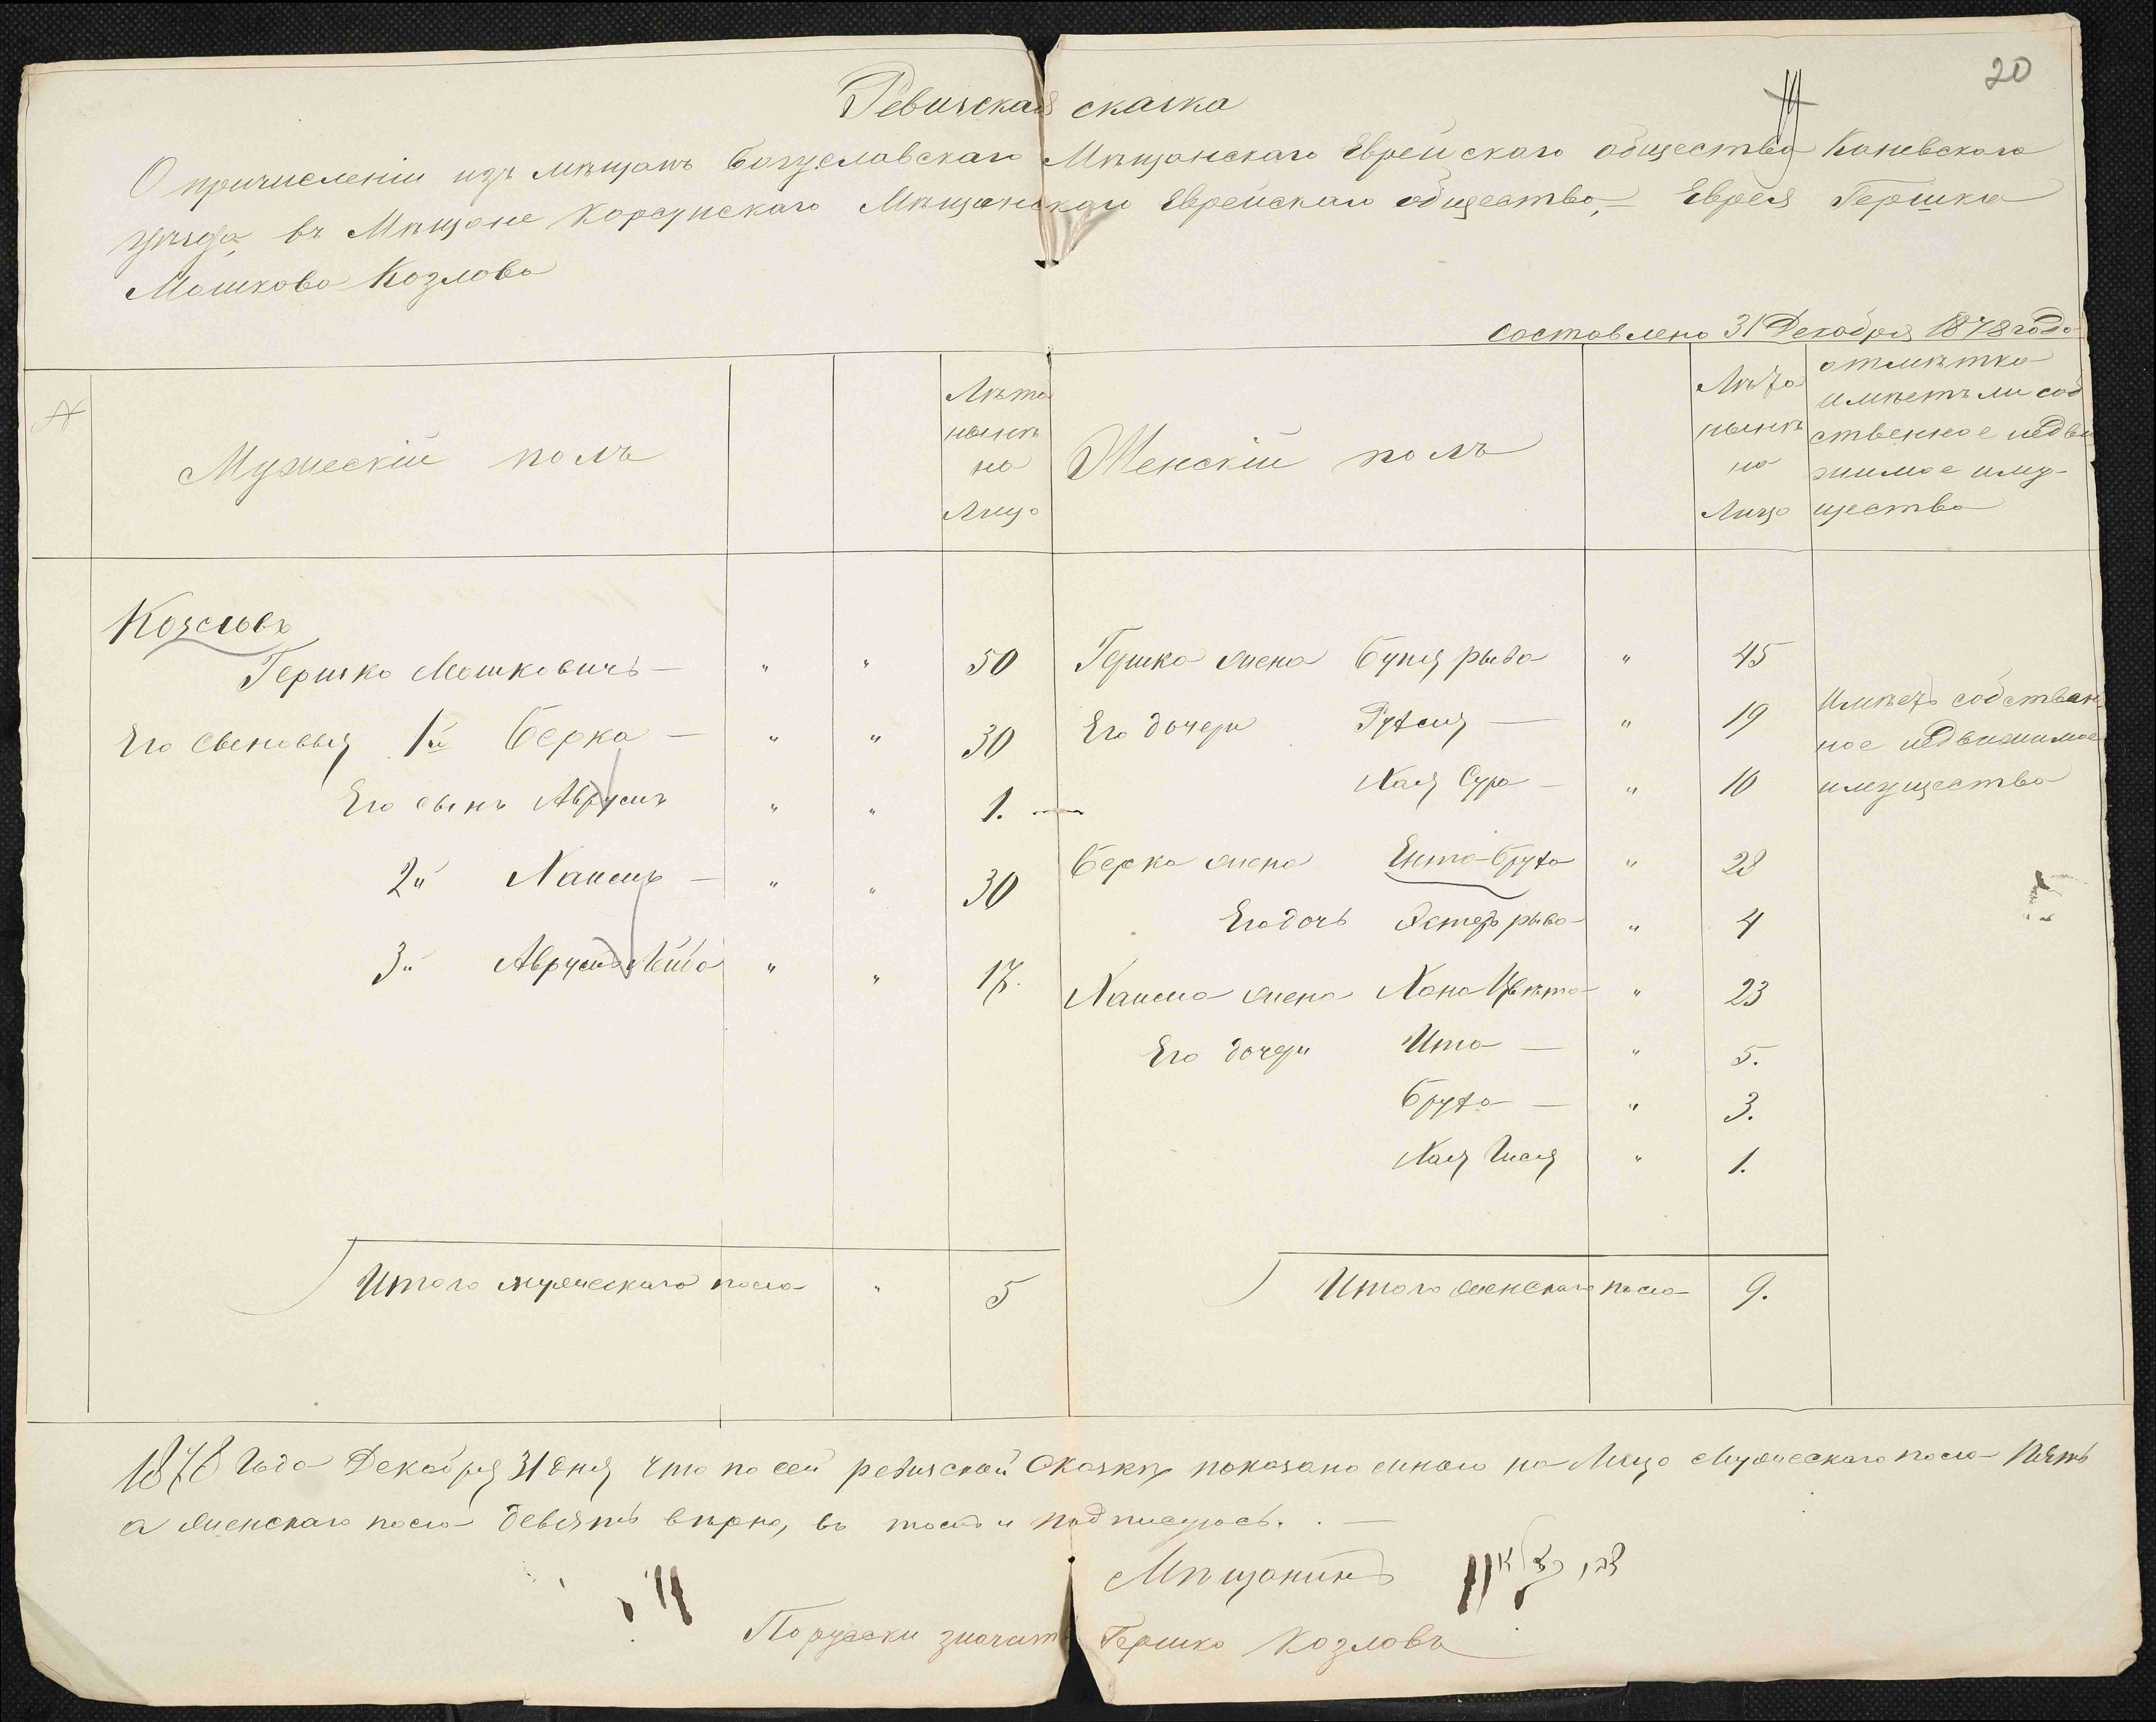 20
Ревизская сказка
О причисленіи изъ мѣщанъ Богуславскаго Мѣщанскаго Еврейскаго общества Каневскаго
уѣзда, въ Мѣщане Корсунскаго Мѣщанскаго Еврейскаго общества, — Еврея Гершка
Мошкова Козлова
Составлена 31 Декабря 1878 года
№
Мужескій полъ
Лѣта
нынѣ
на
лицо
Женскій полъ
Лѣта
нынѣ
на
лицо
отмѣтка
имѣетъ ли соб
ственное недви
жимое иму-
щество
Козловъ
Гершко Мошковичъ — " " 50 Гершка жена Буня рыва " 45
Его сыновья 1й Берка — " " 30 Его дочери — " 19 Имѣетъ собствен
ное недвижимое
Его сынъ Аврумъ " " 1. — Хая Сура — " 10 имущество
Берка жена Ента-Бруха " 28
2й Хаимъ — " " 30
Его дочь Эстеръ рыва " 4
3й Аврумъ Лейба " " 17.
Хаима жена Хана Цвѣта " 23
Его дочери Ита — " 5.
Бруха — " 3.
Хая " 1.
Итого мужескаго пола " 5 Итого женскаго пола 9.
1878 Года Декабря 31 дня что по сей ревизской сказкѣ показано мною на лицо мужескаго пола пять
а женскаго пола девять вѣрно, въ томъ и подписуюсь. —
Мѣщанинъ
По руски значитъ Гершко Козловъ